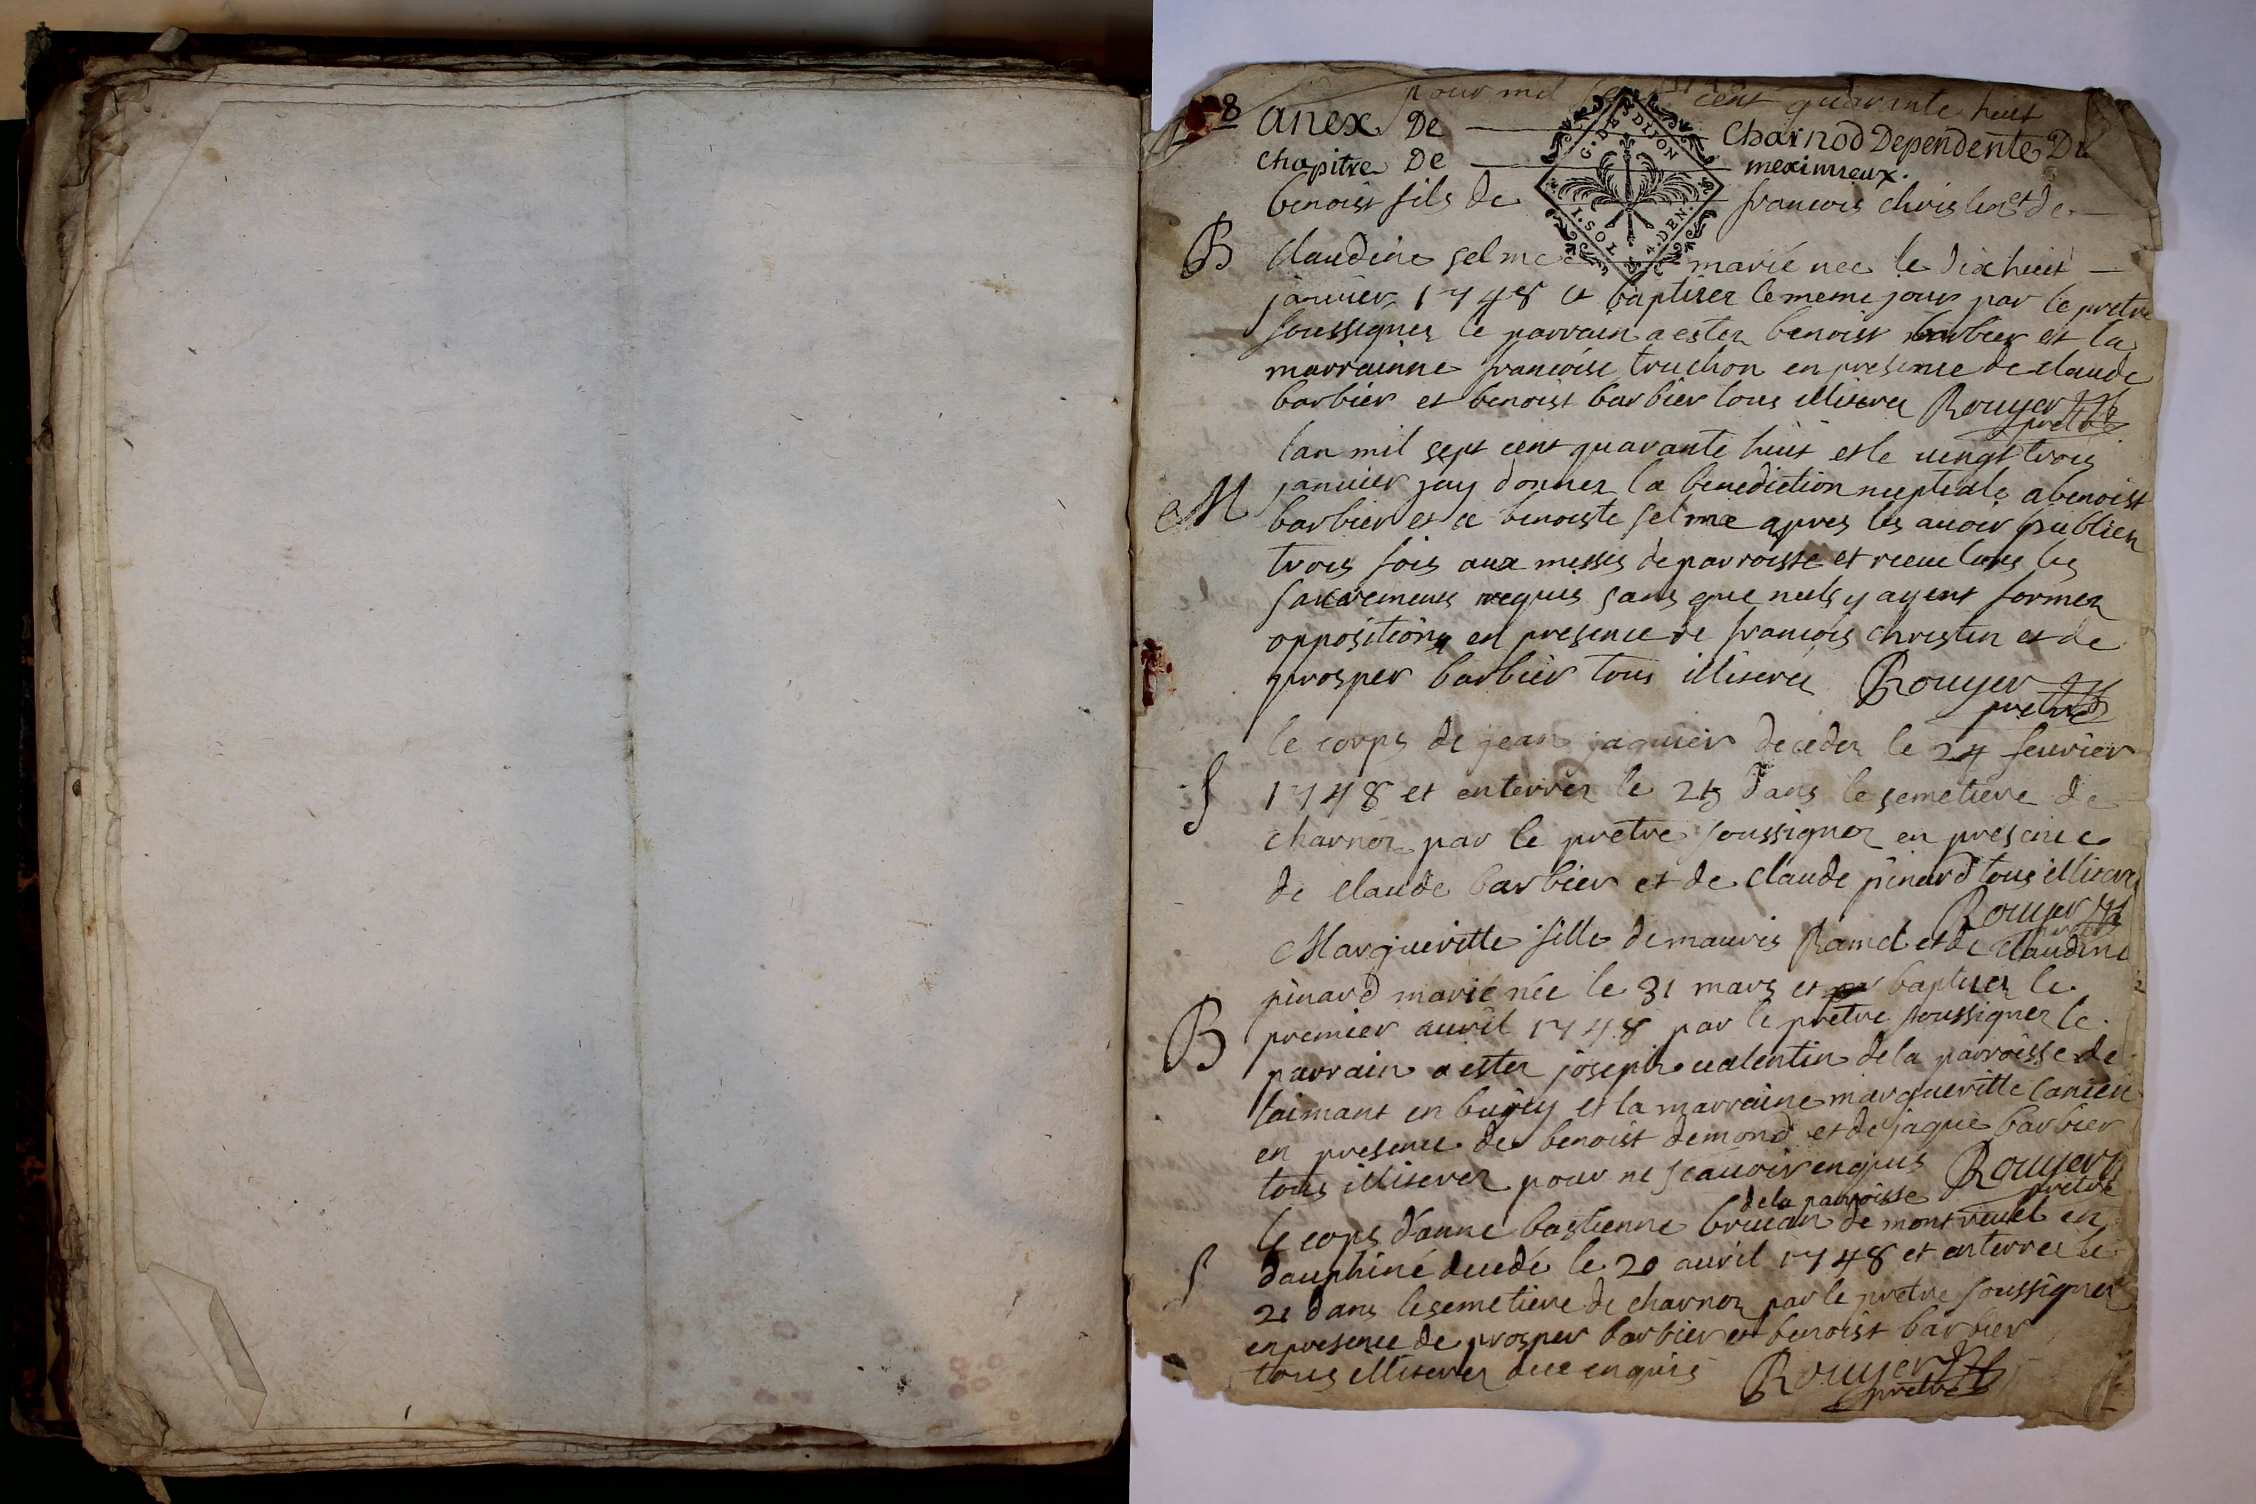 pour mil sept cent quarante huit
8 anex De Charnod Dependente Du
chapitre De meximieux.
G. DE DIJON
1. SOL 4. DEN.
benoist fils de francois christin et de
B claudine selme marié nee le dixhuit
janvier 1748 et baptisez le meme jour par le pretre
soussignez le parrain a estez benoist barbier et la
marrainne francoise truchon en presence de claude
barbier et benoist barbier tous illiterez Rouyer
pretre
lan mil sept cent quarante huit et le uingt trois
januier jay donnez la benediction nuptiale a benoist
M barbier et a benoiste selme apres les auoir publiez
trois fois aux messes de parroisse et receu tous les
sacremens requis sans que nuls y ayent formez
opposition en presence de francois christin et de
prosper barbier tous illiterez Rouyer
pretre
le corps de jean jaquier decedez le 24 feurier
S 1748 et enterrez le 25 dans le semetiere de
charnoz par le pretre soussignez en presence
de claude barbier et de claude pinard tous illiterez
Rouyer
pretre
Margueritte fille de mauris Ramel et de claudine
pinard marié née le 31 mars et baptisez le
B premier auril 1748 par le pretre soussignez le
parrain a estez joseph ualentin de la parroisse de
laimant en bugey et la marraine margueritte
en presence de benoist demond et de jaque barbier
tous illiterez pour ne scauoir enquis Rouyer
pretre
de la parroisse
le corps d'anne bastienne de montreuel en
S dauphiné decedé le 20 auril 1748 et enterrez le
21 dans le semetiere de charnoz par le pretre soussignez
en presence de prosper barbier et benoist barbier
tous illiterez enquis Rouyer
pretre